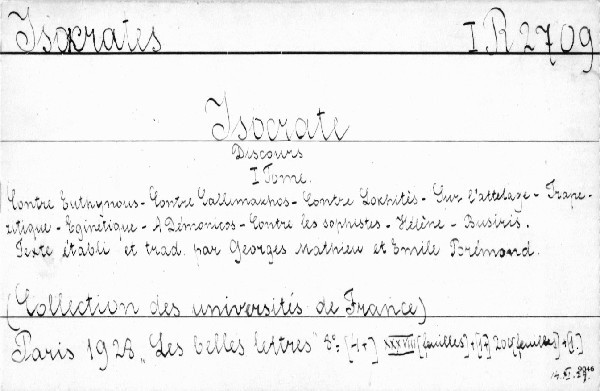 Isokrates I.R 2709
Isocrate
Discours
I Tome.
Contre Euthynous - Contre Callimakhos - Contre Lokhitès - Sur l'attelage - Trape-
zitique - Eginètique - A Démonicos - Contre les sophistes - Hélène - Busiris.
Texte établi et trad. par Georges Mathieu et Emile Brémond.
(Collection des universités de France)
Paris 1928 „Les belles lettres" 8° [4+] XXXVIII [feuilles] + [1] 204 [feuilles] + [1.]
14. XI. 29.